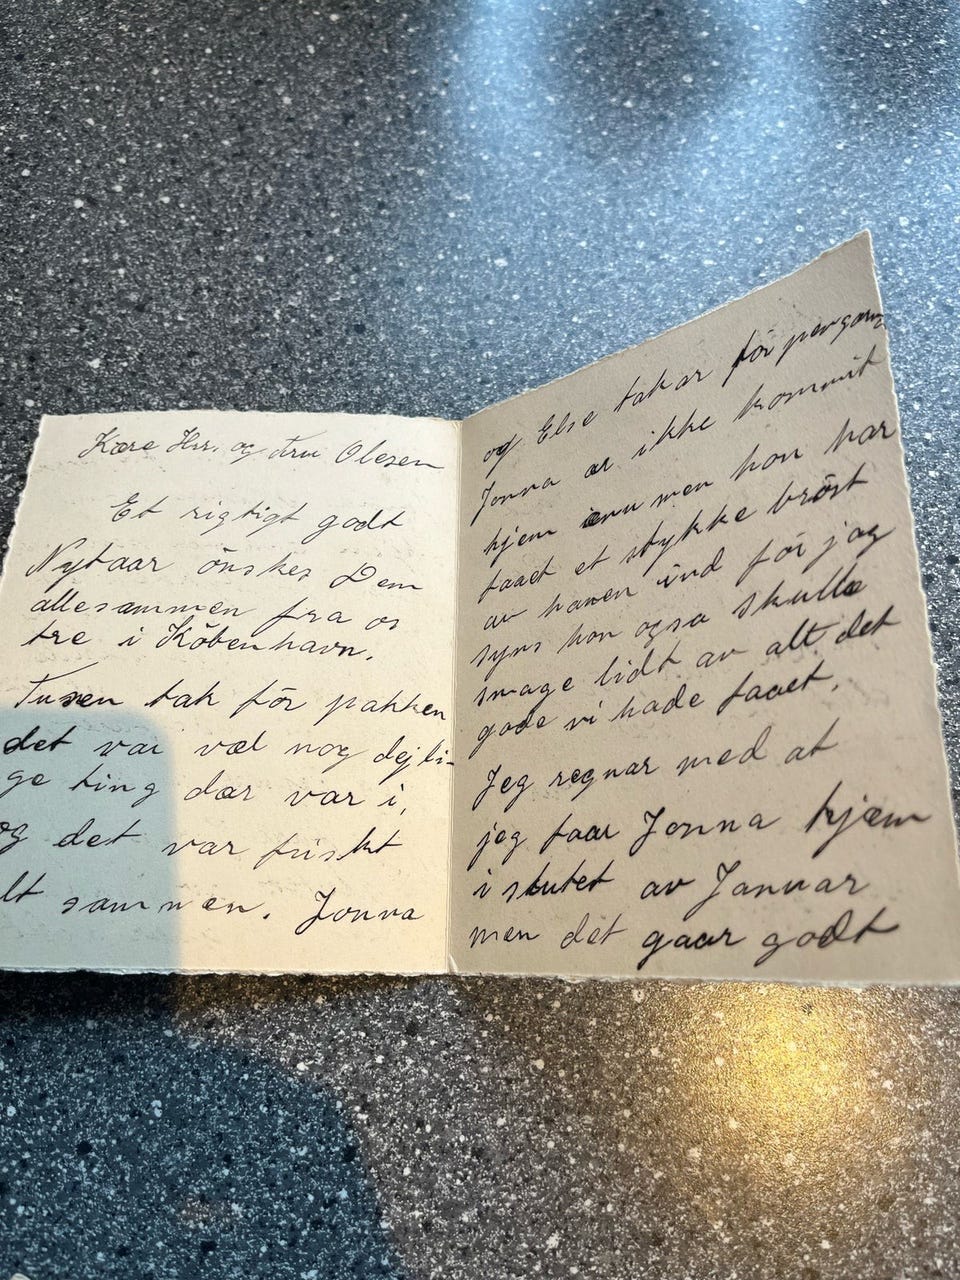 Kære Hrr. og Fru Olesen
Et rigtigt godt
Nytaar önskes Dem
allesammen fra os
tre i Köbenhavn.
Tusen tak för pakken
det var væl nog dejli-
ge ting dær var i,
og det var friskt
lt sammen. Jonna
og Else takar för pengarna
Jonna ær ikke kommit
hjem ænu men hon har
faaet et stykke bröst
av hanen ind för jag
syns hon ogsa skulle
smage lidt av alt det
gode vi hade faaet.
Jeg regnar med at
jeg faar Jonna hjæm
i slutet av Januar
men det gaar godt